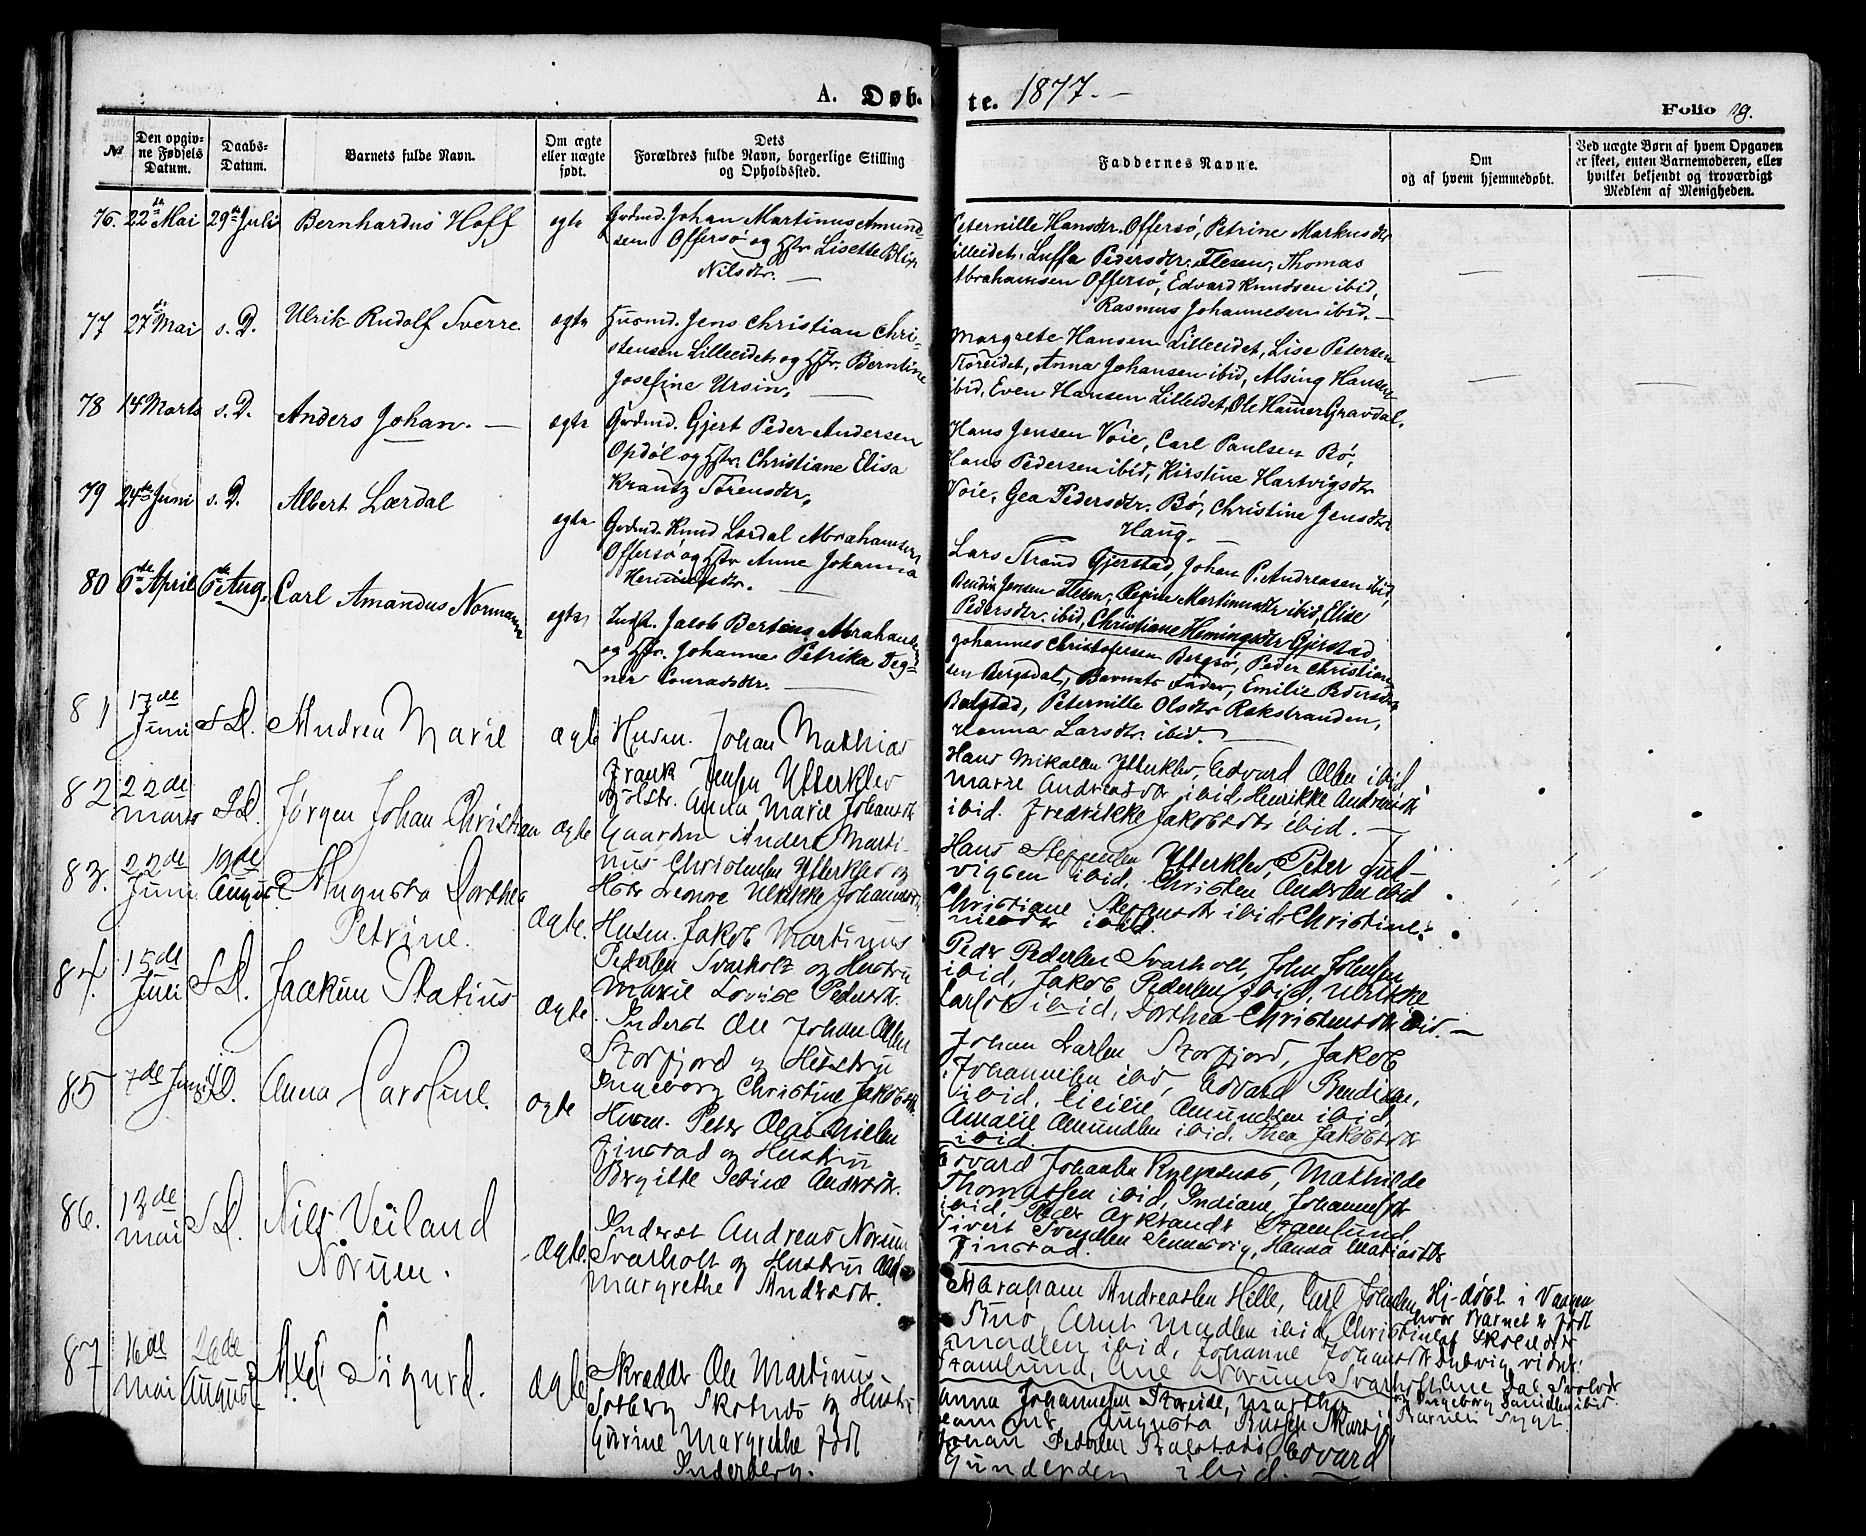 A. Døb- te. 1877.-
Folio 19.
№
Den opgiv-
ne Fødsels
Datum.
Daabs-
Datum.
Barnets fulde Navn.
Om ægte
eller uægte
født.
Dets
Forældres fulde Navn, borgerlige Stilling
og Opholdssted.
Faddernes Navne.
Om
og af hvem hjemmedøbt.
Ved uægte Børn af hvem Opgaven
er skeet, enten Barnemoderen, eller
hvilket bekjendt og troværdigt
Medlem af Menigheden.
76. 22de Mai 29de Juli Bernhardus Hoff ægte
Johan Martinus Amund-
sen Offersø og Lisette Blix
Nilsdtr.
Peternille Hansdtr. Offersø, Petrine Markusdtr
Lilleeidet, Luffa Pedersdtr. Flesen, Thomas
Abrahamsen Offersø, Edvard Knudsen ibid,
Rasmus Johannesen ibid.-
77 27de Mai s. D. Ulrik Rudolf Sverre ægte
Huusmd. Jens Christian Chri-
stensen Lilleeidet og Hstr. Berntine
Josefine Ursin.
Margrete Hansen Lilleeidet, Lise Petersen
Storeidet, Anna Johansen ibid, Alsing Hansen
ibid, Even Hansen Lilleeidet, Ole Hamer Gravdal.
78 14 Marts s. D. Anders Johan.- ægte
Gjert Peder Andersen
Opdøl og Hstr. Christiane Elisa
Krantz Sørensdtr.
Hans Jensen Voie, Carl Paulsen Bø,
Hans Pedersen ibid, Kirstine Hartvigsdtr
Voie, Gea Pedersdtr. Bø, Christine Jensdtr
Haug.-
79 24de Juni s. D. Albert Lærdal ægte
Knud Lærdal Abrahamsen
Offersø og Hstr Anne Johanna
Henningsdtr.
Lars Strand Gjerstad, Johan P. Andreasen ibid,
Bendix Jensen Flesen, Regine Martinusdtr ibid, Elise
Pedersdtr. ibid, Christiane Hemingsdtr Gjerstad
80 6de April 6te Aug. Carl Amandus Normann ægte
Indst. Jacob Berteus Abrahamsen
og Hstr. Johanne Petrika Teg-
ner Conradsdtr.
Johannes Christofersen Bergsø, Peder Christian-
sen Bergsdal, Barnets Fader, Emilie Pedersdtr
Balstad, Peternille Olsdtr Rækstranden,
Hanna Larsdtr. ibid.
81 17de Juni S D. Andrea Marie ægte
Husm. Johan Mathias
Frank Jensen Ytterklev
og Hstr. Anna Marie Johansdtr
Hans Mikalsen Ytterklev, Edvard Olsen ibid,
Marre Andreasdtr ibid, Henrikke Andreasdtr
ibid. Fredrikke Jakobsdtr ibid.-
82 22de Marts S D. Jørgen Johan Christian ægte
Gaardm. Anders Marti-
nus Christensen Ytterklev og
Hstr Leonore Ulrikke Johannesdtr.
Hans Steffensen Ytterklev, Peter Lud-
vigsen ibid, Christen Andersen ibid
Christiane Steffensdtr ibid, Christine
ibid.
83. 22de Juni 19de August Augusta Dorthea
Petrine. ægte.
Husm. Jakob Martinus
Pedersen Svarholt og Hustru
Marie Lovise Pedersdtr.
Peder Pedersen Svarholt, John Johnsen
ibid, Jakob Pedersen ibid, Ulrikke
Carlsdtr ibid, Dorthea Christensdtr ibid.-
84. 15de Juli S D. Jaakim Statius ægte
Inderst Ole Johan Olsen
Storfjord og Hustru
Ingeborg Christine Jakobsdtr.
Johan Larsen Storfjord, Jakob
Johannesen ibid, Edvard Bendixsen,
ibid, Cicilie Amundsen ibid,
Amalie Amundsen ibid. Thea Jakobsdtr
ibid.
85 7de Juni S D. Anna Caroline. ægte
Husm. Peter Olai Nielsen
Finstad og Hustru
Birgitte Sebine Andersdtr.
Edvard Johansen, Mathilde
Thomassen ibid, Indiane Johannesdtr
ibid, Peder Stamsund,
Sivert Svendsen Sennesvig, Hanna Matiasdtr
Finstad.
86. 13de Mai S D. Nils Veiland
Norum. ægte.
Inderst Andreas Norum
Svarholt og Hustru
Margrethe Andersdtr.
Abraham Andreassen Hille, Carl Johnsen
Stuø, Arnt Madsen ibid, Christine
Madsen ibid, Johanne Johansdtr
Stamsund, Ane Norum Svarholt.
Hj-døbt i Vaagen
hvor Barnet er født
af Skoleholder
Ludvig
Ane Dal Svolvær
og Ingeborg Danielsen ibid.
Barnet sygt.
87 16de Mai 26de August Axel Sigurd. ægte
Skrædder Ole Martinus
Solberg Skotnes og Hustru
Gurine Margrethe født
Inderberg.
Anna Johannesen Storeide, Martha
Augusta
Johan Pedersen Balstad, Edvard
Gundersen ibid.